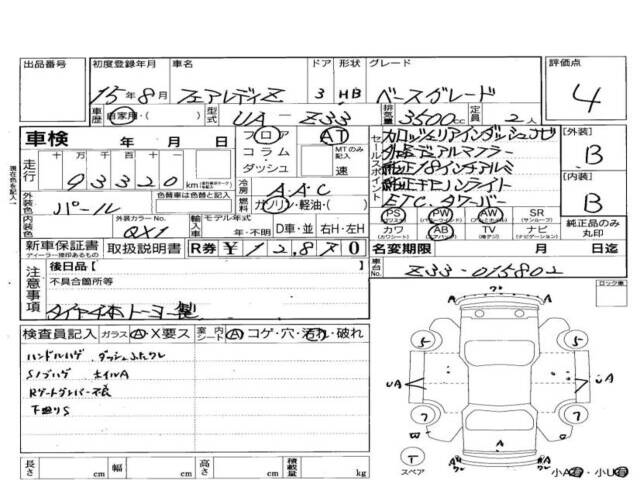 出品番号 初度登録年月 車名 ドア 形状 グレード 評価点
15年8月 フェアレディZ 3 HB ベースグレード 4
車歴 自家用・( ) 型式 UA-Z33 排気量 3500cc 定員 2人
車検 年 月 日 フロア コラム・ダッシュ AT MTのみ記入 速
セールスポイント カロッツェリアインダッシュナビ
社外デュアルマフラー
純正18インチアルミ
純正キセノンライト
ETC.タワーバー
[外装] B
[内装] B
走行 十万千百十一
93320km
冷房 A.A.C
外装色 パール 色替車は色替と記入
燃料 ガソリン・軽油・( )
内装色 外装カラーNo. QX1 輸入車 モデル年式 年・不明 D車・並 右H・左H
PS PW AW SR(サンルーフ)
カワ(カワシート) AB(エアバッグ) TV(地デジ) ナビ
純正品のみ丸印
新車保証書 ディーラー捺印あるもの 取扱説明書 R券 ¥12,870
名変期限 月 日迄
車台No. Z33-015802
注意事項 後日品[ ]
不具合箇所等
タイヤ4本トーヨー製
ロック車
検査員記入 ガラス A・X要ス 室内シート A コゲ・穴・汚れ・破れ
ハンドルハゲ.ダッシュふたワレ
Sノブハゲ ホイルA
Rゲートダンパー不良
下廻りS
5 5
UA A UA
7 7
A
T スペア 小A・小U
長さ cm 幅 cm 高さ cm 積載量 kg